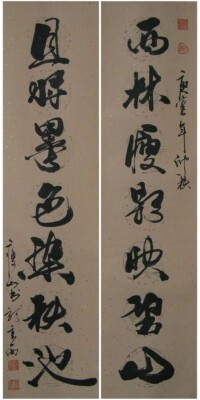 庚寅年仲秋
西林瘦影映碧山
且將墨色染秋池